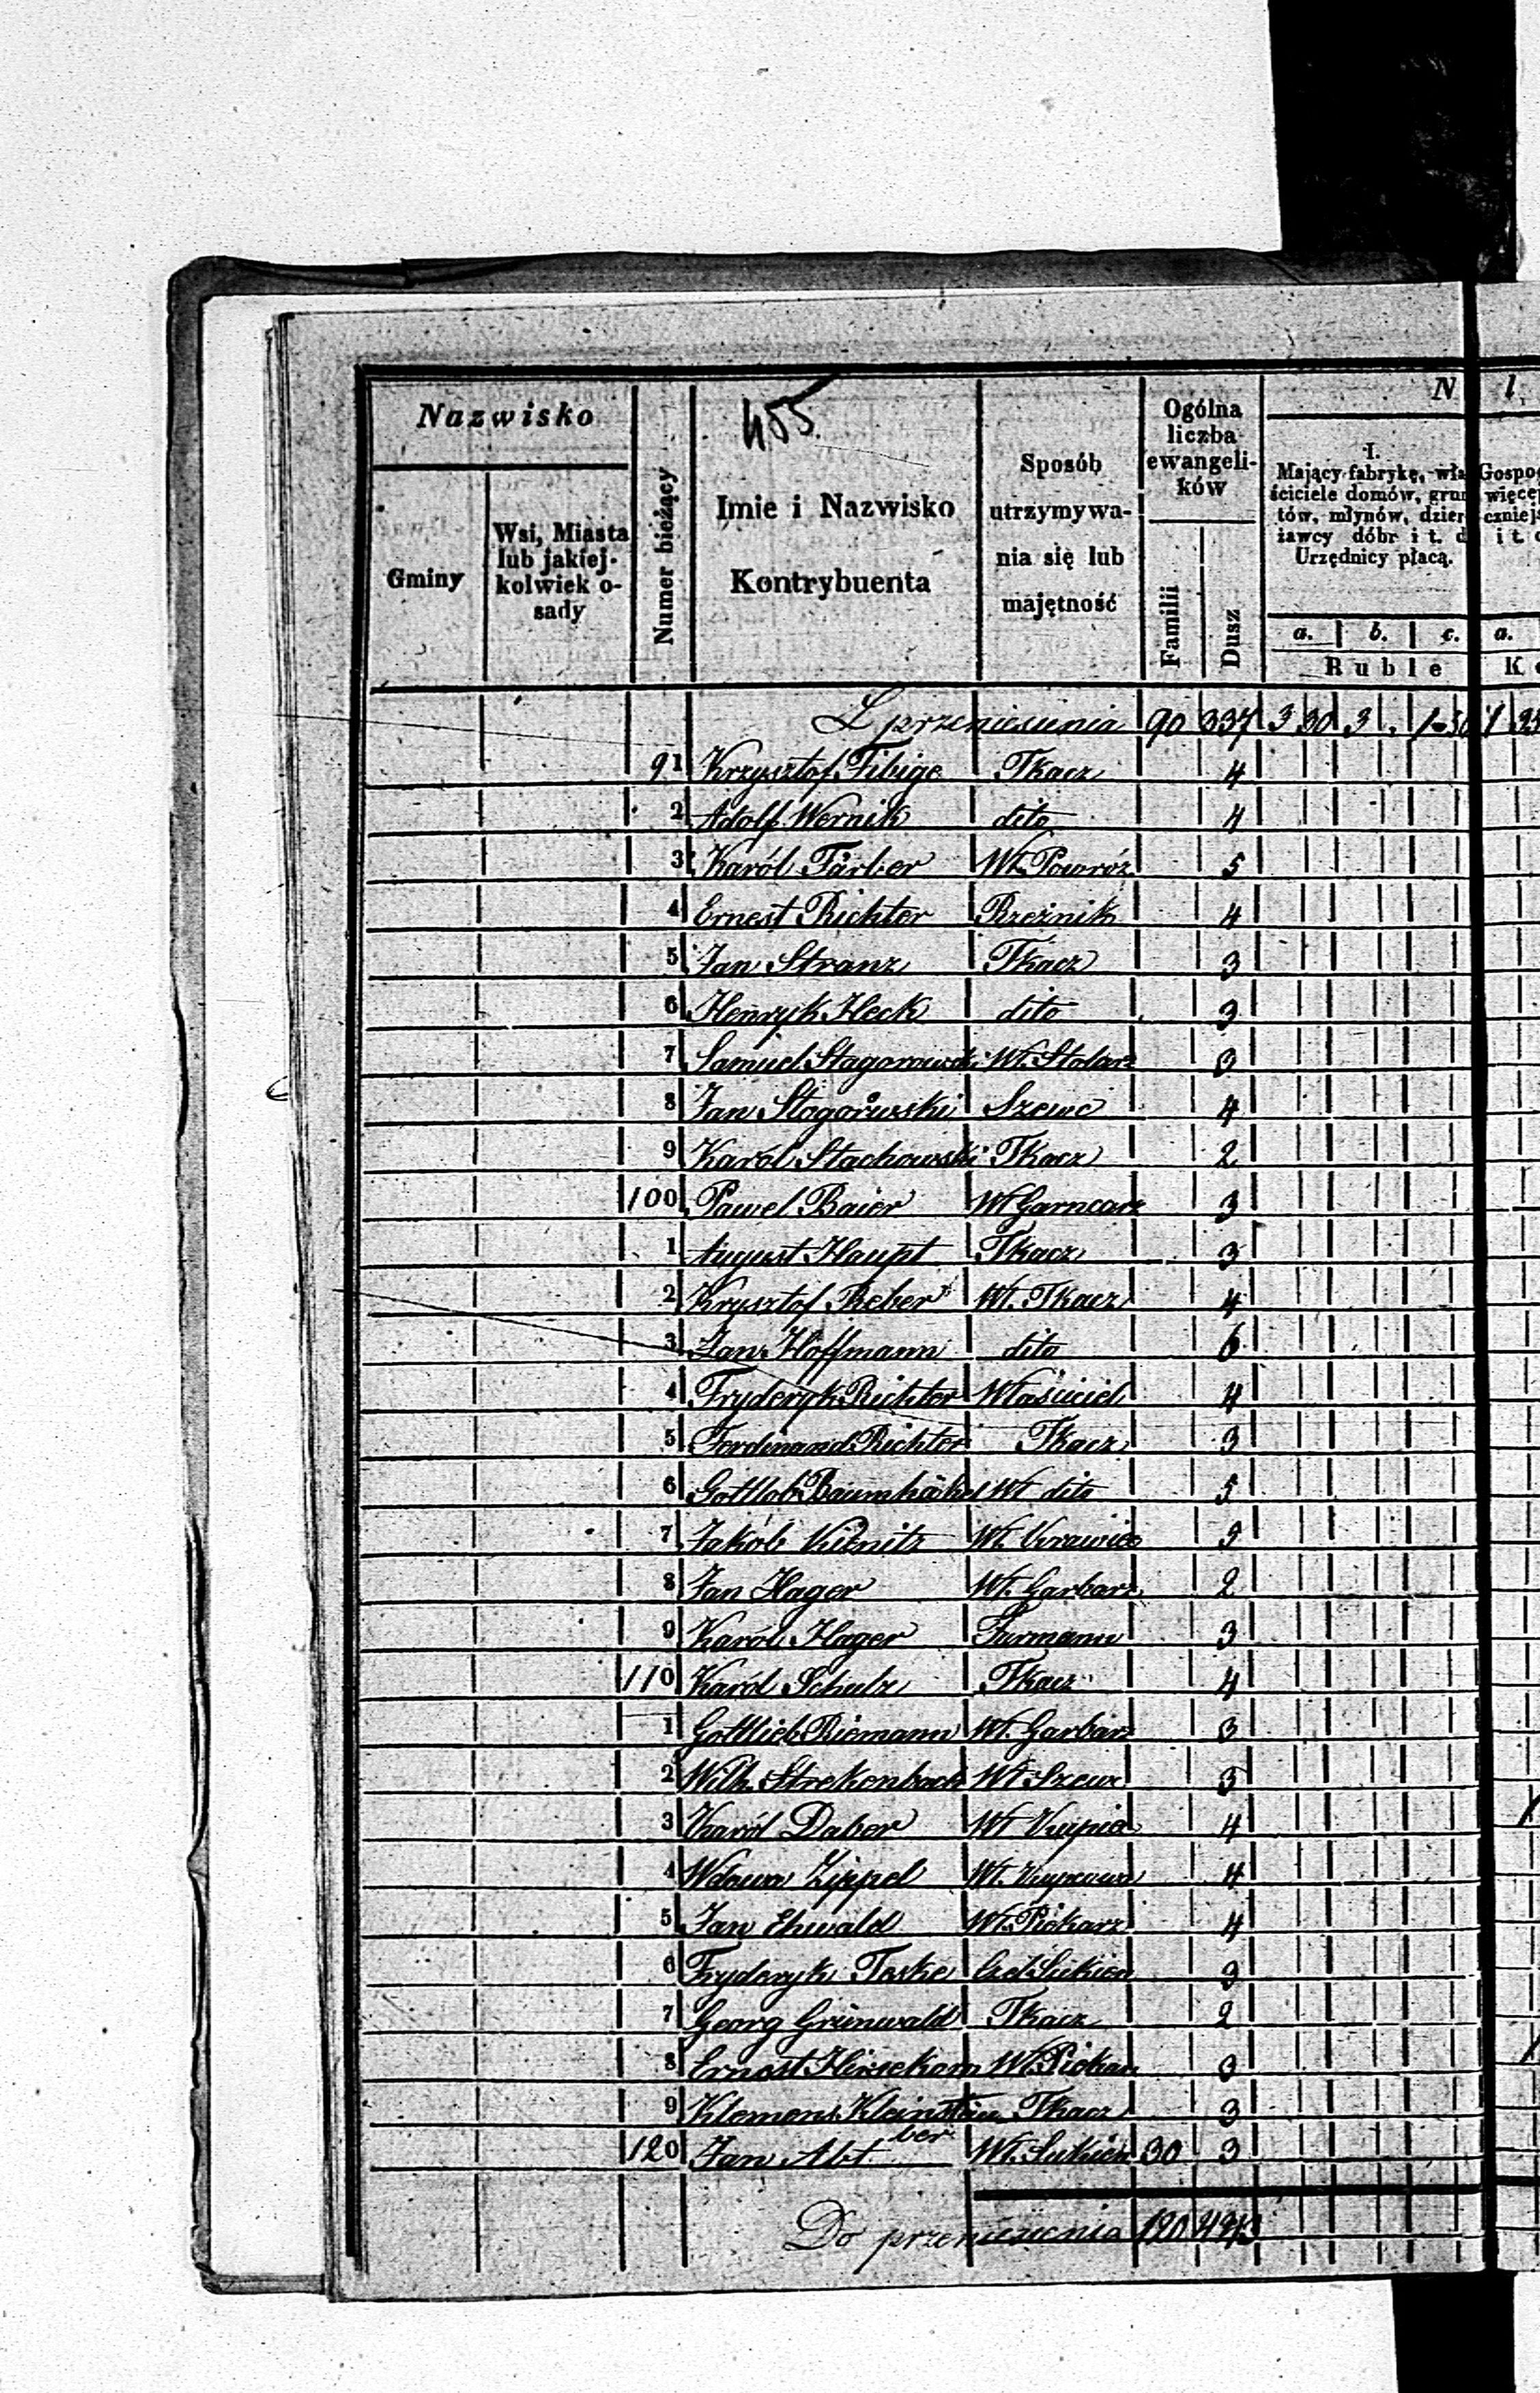 455
Nazwisko
Gminy
Wsi, Miasta lub jakiej-kolwiek o-sady
Numer bieżący
Imie i Nazwisko Kontrybuenta
Sposób utrzymywa-nia się lub majętność
Ogólna liczba ewangeli-ków
Familii
Dusz
N l
I.
Mający fabrykę, wła
ściciele domów, grun
tów, młynów, dzier
żawcy dóbr i t. d
Urzędnicy płacą.
Gospo
więce
czniej
i t.
a. b. c. a.
Ruble K
Z przeniesienia 90 337 3 30 3 . 1-50 1
91 Krzysztof Fibige Tkacz 4
2 Adolf Wernik dito 4
3 Karól Färber Wł. Powróz 5
4 Ernest Richter Rzeźnik 4
5 Jan Stranz Tkacz 3
6 Henryk Heck dito 3
7 Samuel Stagorowski Wł. Stolarz 3
8 Jan Stogorowski Szewc 4
9 Karól Stachowski Tkacz 2
100 Paweł Baier Wł Garncarz 3
1 August Haupt Tkacz 3
2 Krysztof Reber Wł. Tkacz 4
3 Jan Hoffmann dito 6
4 Fryderyk Richter Właściciel 4
5 Ferdinand Richter Tkacz 3
6 Gottlob Baumhäkel Wł dito 5
7 Jakób Kiknitz Wł. Krawiec 3
8 Jan Hager Wł. Garbarz 2
9 Karól Hager Furmann 3
110 Karól Schulz Tkacz 4
1 Gottlieb Riemann Wł. Garbarz 3
2 Wilh. Strekenbach Wł Szewc 3
3 Karól Daber Wł Kupiec 4
4 Wdowa Zippel Wł. Kupcowa 4
5 Jan Ehwald Wł. Piekarz 4
6 Fryderyk Teske Czel. Sukien 3
7 Georg Grünwald Tkacz 2
8 Ernest Hirsekorn Wł. Piekarz 3
9 Klemens Kleinstäu Tkacz 3
ber
120 Jan Abt Wł. Sukien 30 3
Do przeniesienia 120